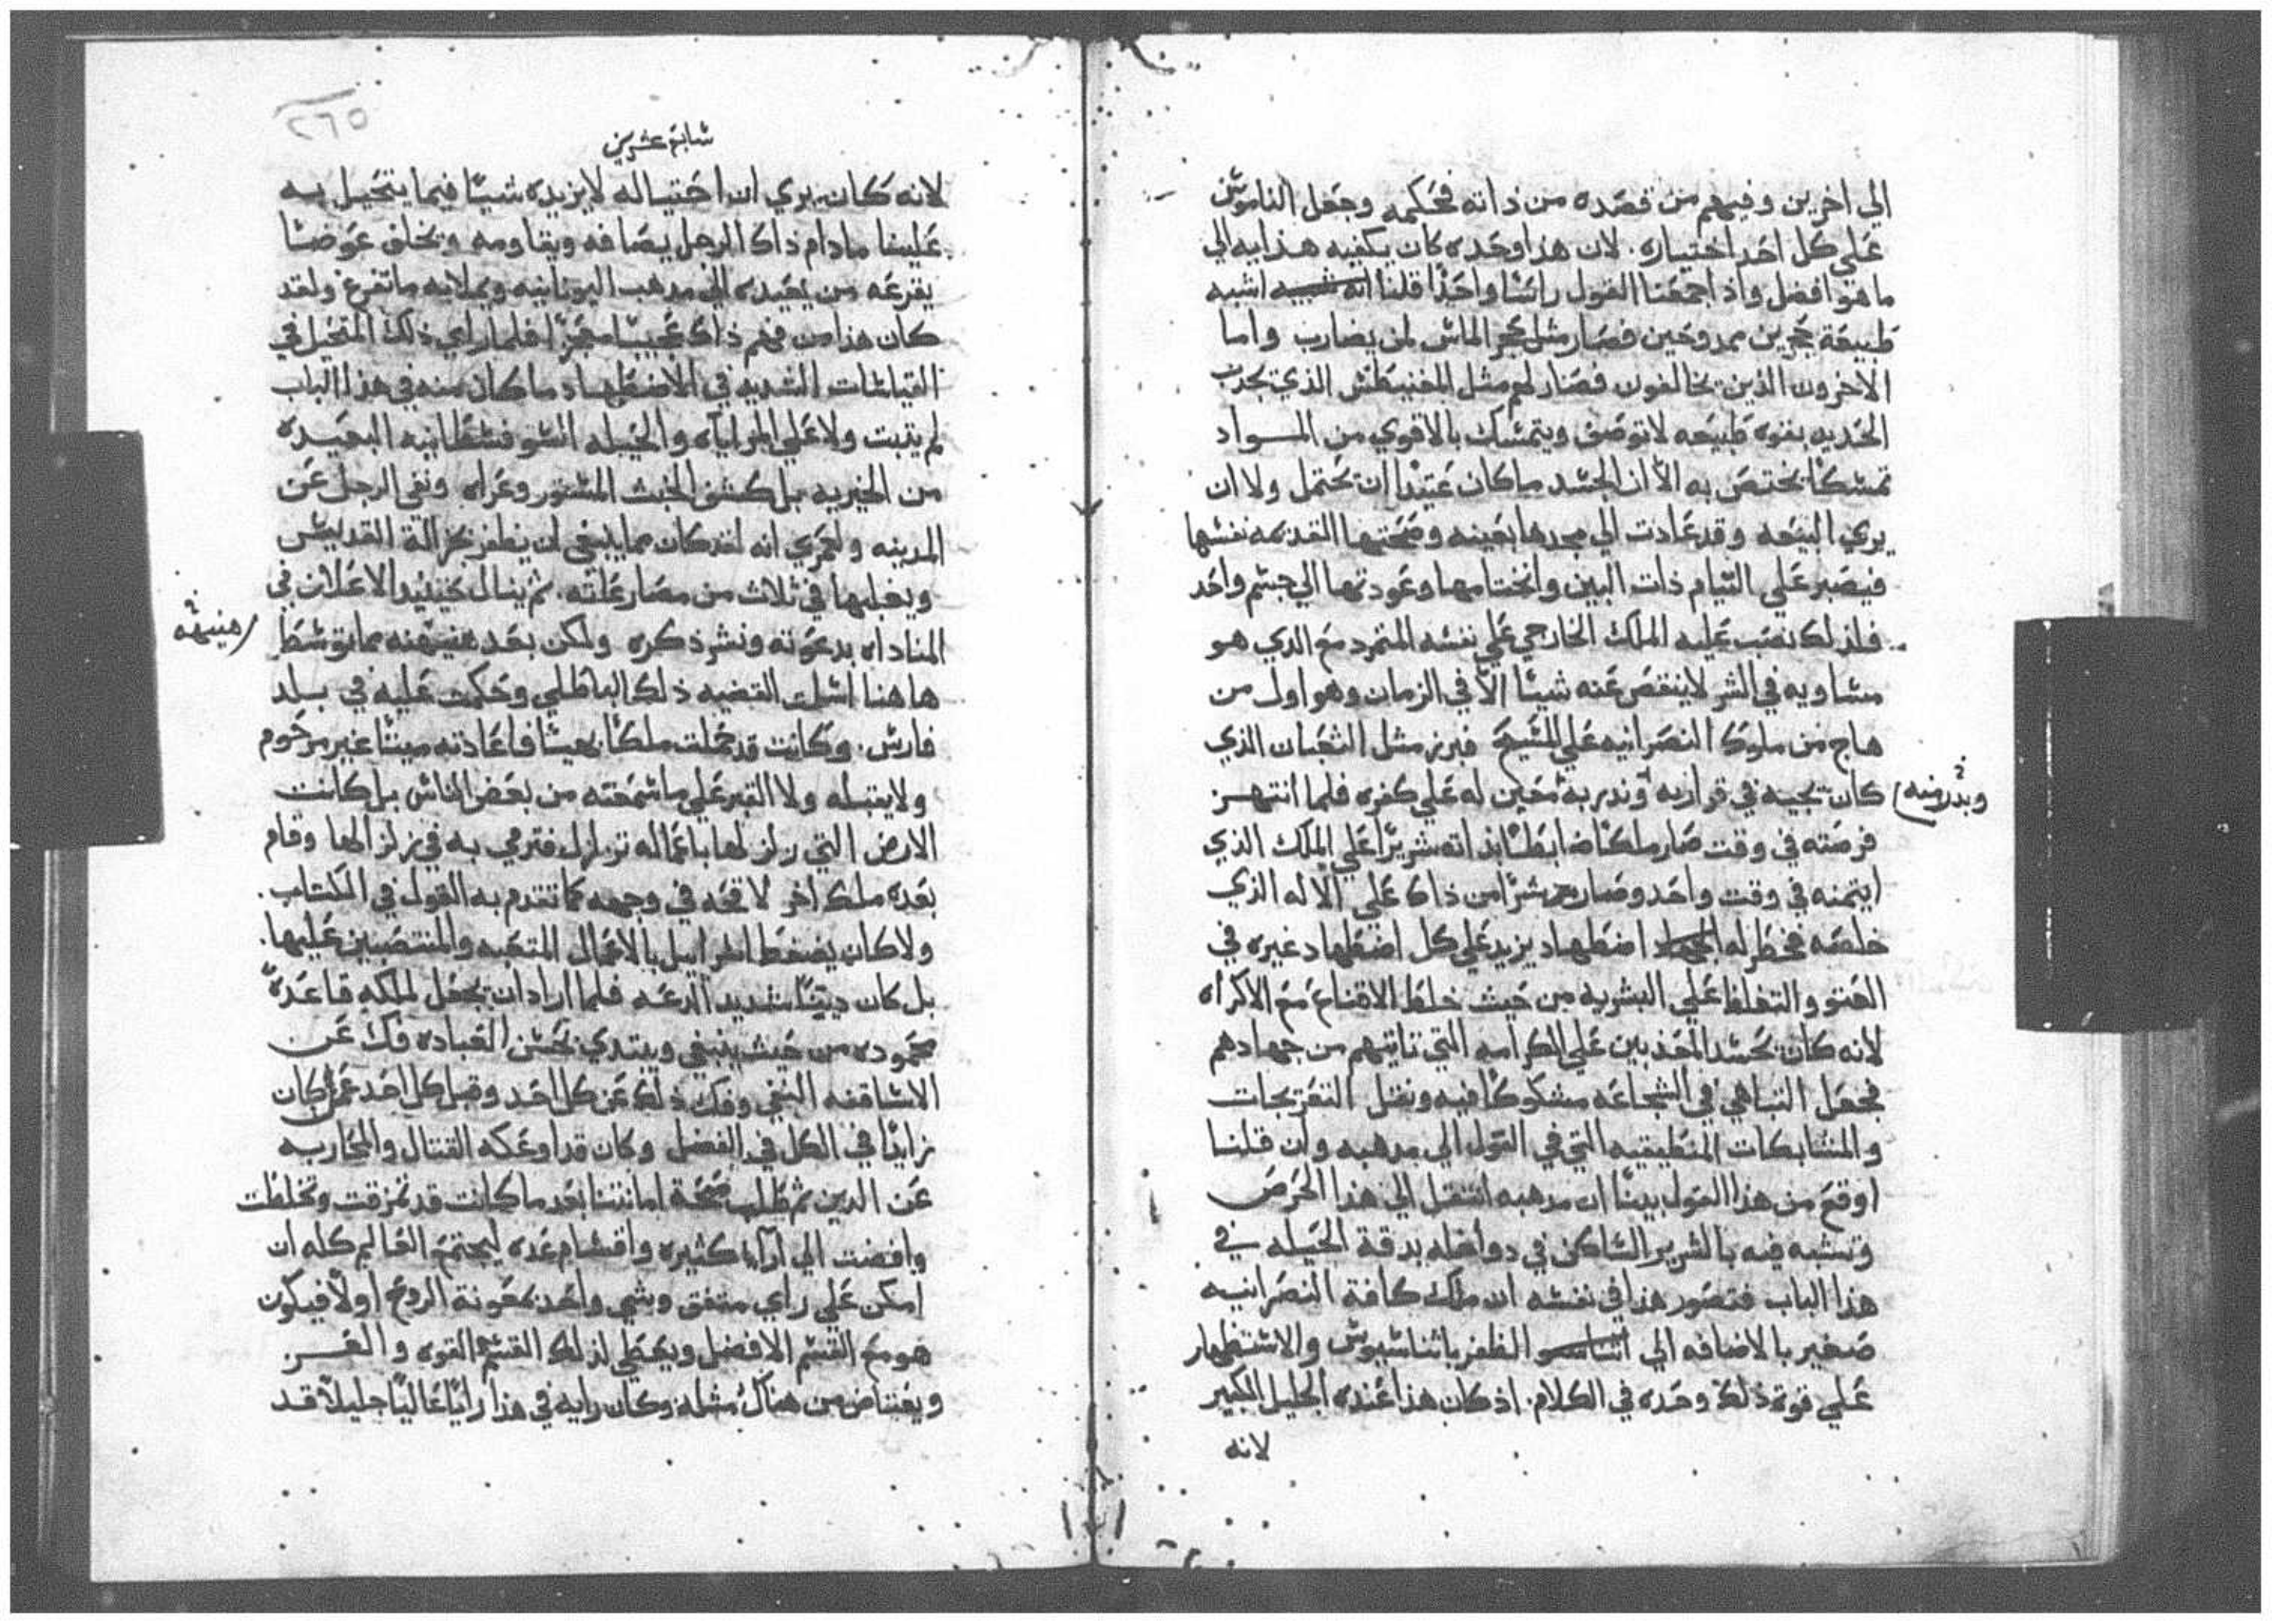 الي اخرين وفيهم من قصده من ذاته فحكمه وجعل الناموس
علي كل احد اختياره. لان هذا وحده كان يكفيه هدايه الي
ما هو افضل واذ اجمعنا القول راسًا واحدًا قلنا انه شبيه اشبه
طبيعة حجرين ممدوحين فصار مثل حجر الماس لمن يضارب واما
الاخرون الذين يخالفون فصار لهم مثل المغنيطس الذي يجدب
الحديد بقوه طبيعه لا توصف ويتمسك بالاقوي من المواد
تمسكًا يختص به الا ان الحسد ما كان عتيدا ان يحتمل ولا ان
يري البيعه وقد عادت الي مجدها بعينه وصحتها القديمه نفسها
فيصبر علي التيام ذات البين وانختامها وعودتها الي جسم واحد
فلذلك نصب عليه الملك الخارجي علي نفسه المتمرد مع الذي هو
مساويه في الشر لا ينقص عنه شيئًا الا في الزمان وهو اول من
هاج من ملوك النصرانيه علي المسيح فبرز مثل الثعبان الذي
كان يجيه في قراريه وندر به محين له علي كفره فلما انتهز
وبدر منه
فرصته في وقت صار ملكًا ضابطًا بذاته شريرًا علي الملك الذي
ايتمنه في وقت واحد وصار شرًا من ذاك علي الاله الذي
خلصه فخطر له اضطهاد يزيد علي كل اضطهاد غيره في
العتو والتغلظ علي البشريه من حيث خلط الاقناع مع الاكراه
لانه كان يحسد المعذبين علي الكرامه التي تاتيهم من جهادهم
فجعل التباهي في الشجاعه مشكوكًا فيه ونقل التعريجات
والمشابكات المنطيقيه التي في القول الي مدهبه وان قلنا
اوقع من هذا القول بينًا ان مدهبه انتقل الي هذا الحرص
وتشبه فيه بالشرير الساكن في دواخله بدقة الحيله في
هذا الباب فتصور هذا في نفسه ان ملك كافة النصرانيه
صغير بالاضافه الي اتناسيو الظفر باثناسيوس والاستظهار
علي قوة ذلك وحده في الكلام. اذ كان هذا عنده الجليل الكبير
لانه
٢٦٥
سابع عشرين
لانه كان يري ان احتياله لا يزيده شيئًا فيما يتحيل به
علينا ما دام ذاك الرجل يصافه ويقاومه ويخلف عوضًا
يقرعه من يعيده الي مدهب اليونانيه ويملا به ما تفرغ ولقد
كان هذا من فهم ذاك عجيبًا معجزًا فلما راي ذلك المتحيل في
القياسات الشديد في الاضطهاد ما كان منه في هذا الباب
لم يتبت ولا علي المراياه والحيله السوفسطانيه البعيده
من الخيريه بل كشف الخبث المستور وعراه ونفي الرجل عن
المدينه ولعمري انه لقد كان مما ينبغي لن يظفر بجزالة القديس
ويغلبها في ثلاث من مصارعاته. ثم ينال حينئد الاعلان في
المناداه بدعوته ونشر ذكره ولكن بعد هنيهه مما توسط
هنيهة
ها هنا اسلت القضيه ذلك الباطلي وحكمت عليه في بلد
فارس. وكانت قد حملت ملكًا بحيسًا فاعادته ميتًا غير مرحوم
ولا يقبله ولا القبر علي ما سمعته من بعض الناس بل كانت
الارض التي زلزلها باعماله تزلزل فترمي به في زلزالها وقام
بعده ملك اخر لا قحه في وجهه كما تقدم به القول في الكتاب.
ولا كان يضغط اسراييل بالاعمال المتعبه والمنتصبين عليها.
بل كان دينًا شديد الدعه فلما اراد ان يجعل لملكه قاعدةً
محموده من حيث ينبغي ويبتدي بحسن العباده فك عن
الاساقفه النفي وفك ذلك عن كل احد وقبل كل احد عمل كان
زايدًا في الكل في الفضل وكان قد اوعكه القتال والمحاربه
عن الدين ثم طلب صحة امانتنا بعد ما كانت قد تمزقت وتخلطت
وافضت الي اراا كثيره واقسام عده ليجتمع العالم كله ان
امكن علي راي متفق وشي واحد بمعونة الروح اولا فيكون
هو مع القسم الافضل ويعطي لذلك القسم القوه والعز
ويعتاض من هناك مثله وكان رايه في هذا رايًا عاليًا جليلًا قد